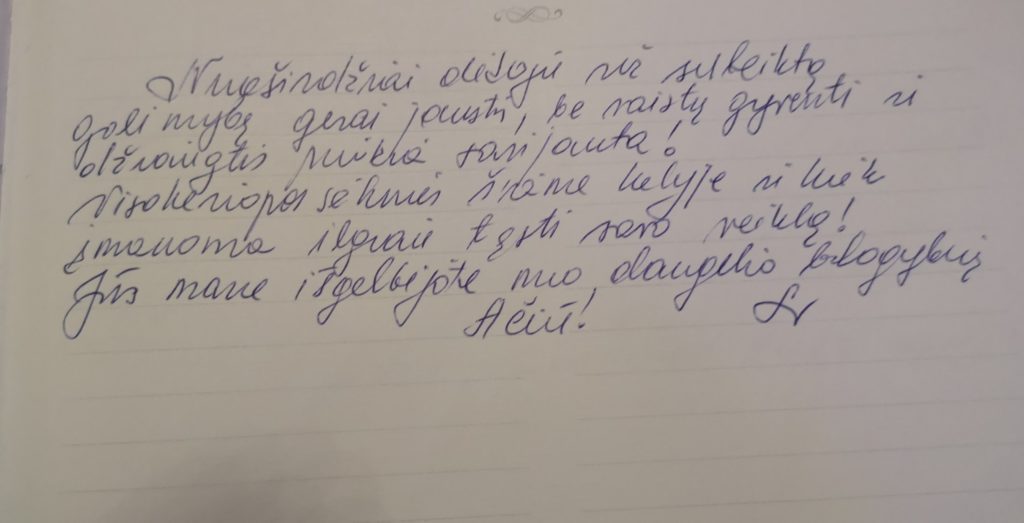 Nuoširdžiai dėkoju už suteiktą
galimybę gerai jaustis, be vaistų gyventi ir
džiaugtis puikia savijauta!
Visokeriopos sėkmės šiame kelyje ir kiek
įmanoma ilgiau tęsti savo veiklą!
Jūs mane išgelbėjote nuo daugelio blogybių
Ačiū!